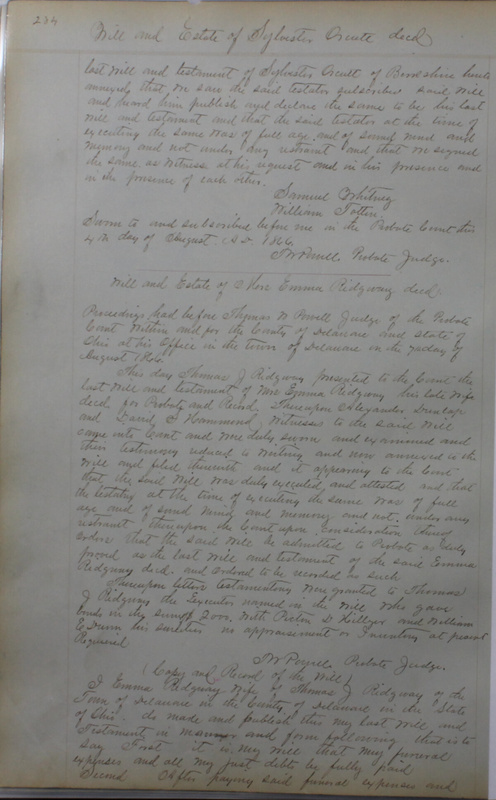 234
Will and Estate of Sylvester Orcutt decd
last will and testament of Sylvester Orcutt of Berkshire hereto
annexed that we saw the said testator subscribe said will
and heard him publish and declare the same to be his last
will and testament and that the said testator at the time of
executing the same was of full age and of sound mind and
memory and not under any restraint and that we signed
the same as witness at his request and in his presence and
in the presence of each other.
Samuel Whitney
William
Sworn to and subscribed before me in the Probate Court this
day of August A.D. 1866.
T W Powell Probate Judge.
Will and Estate of Mrs Emma Ridgway decd.
Proceedings had before Thomas W Powell Judge of the Probate
Court within and for the County of Delaware and State of
Ohio at his Office in the town of Delaware on the day of
August 1866.
This day Thomas J Ridgway presented to the Court the
last will and testament of Mrs Emma Ridgway his late wife
decd for Probate and Record. Thereupon Alexander Dunlap
and David C Hammond, witnesses to the said will
came into Court and were duly sworn and examined and
their testimony reduced to writing and now annexed to the
will and filed therewith and it appearing to the Court
that the said will was duly executed and attested and that
the testator at the time of executing the same was of full
age and of sound mind and memory and not under any
restraint thereupon the Court upon consideration thereof
orders that the said will be admitted to Probate as duly
proved as the last will and testament of the said Emma
Ridgway decd. and ordered to be recorded as such
Thereupon letters testamentary were granted to Thomas
J Ridgway the Executor named in the will who gave
bonds in the sum of 2000. with D. and William
E. his sureties no appraisement or Inventory at present
Required
T W Powell Probate Judge.
(Copy and Record of the Will)
I Emma Ridgway wife of Thomas J Ridgway of the
Town of Delaware in the County of Delaware in the State
of Ohio. do made and publish this my last will and
Testament in manner and form following that is to
say First it is my will that my funeral
expenses and all my just debts be fully paid
Second After paying said funeral expenses and